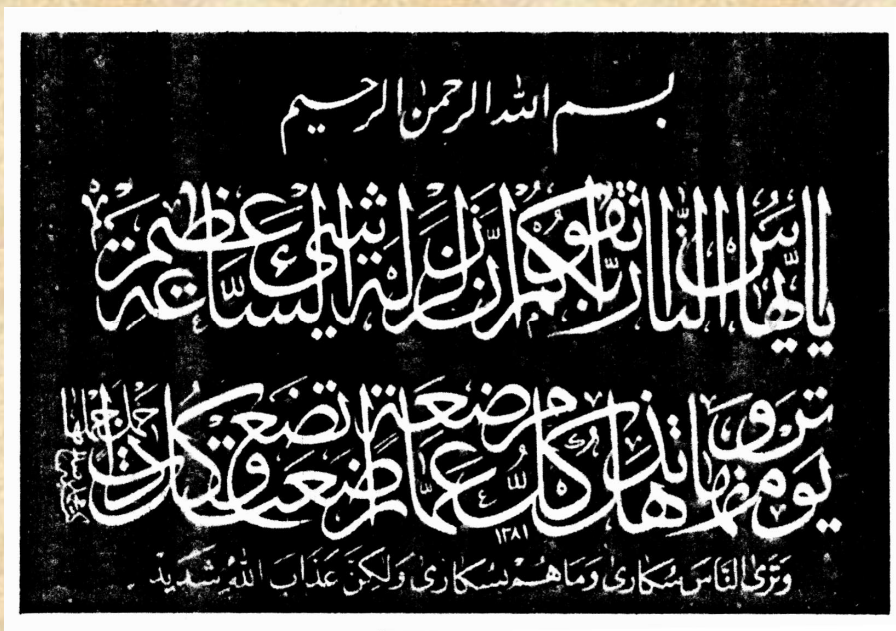 بسم الله الرحمن الرحيم
يا أيها الناس اتقوا ربكم إن زلزلة الساعة شيء عظيم
يوم ترونها تذهل كل مرضعة عما أرضعت وتضع كل ذات حمل حملها
١٣٨١
وَتَرَى النَّاسَ سُكَارَى وَمَا هُمْ بِسُكَارَى وَلَكِنَّ عَذَابَ اللهِ شَدِيد